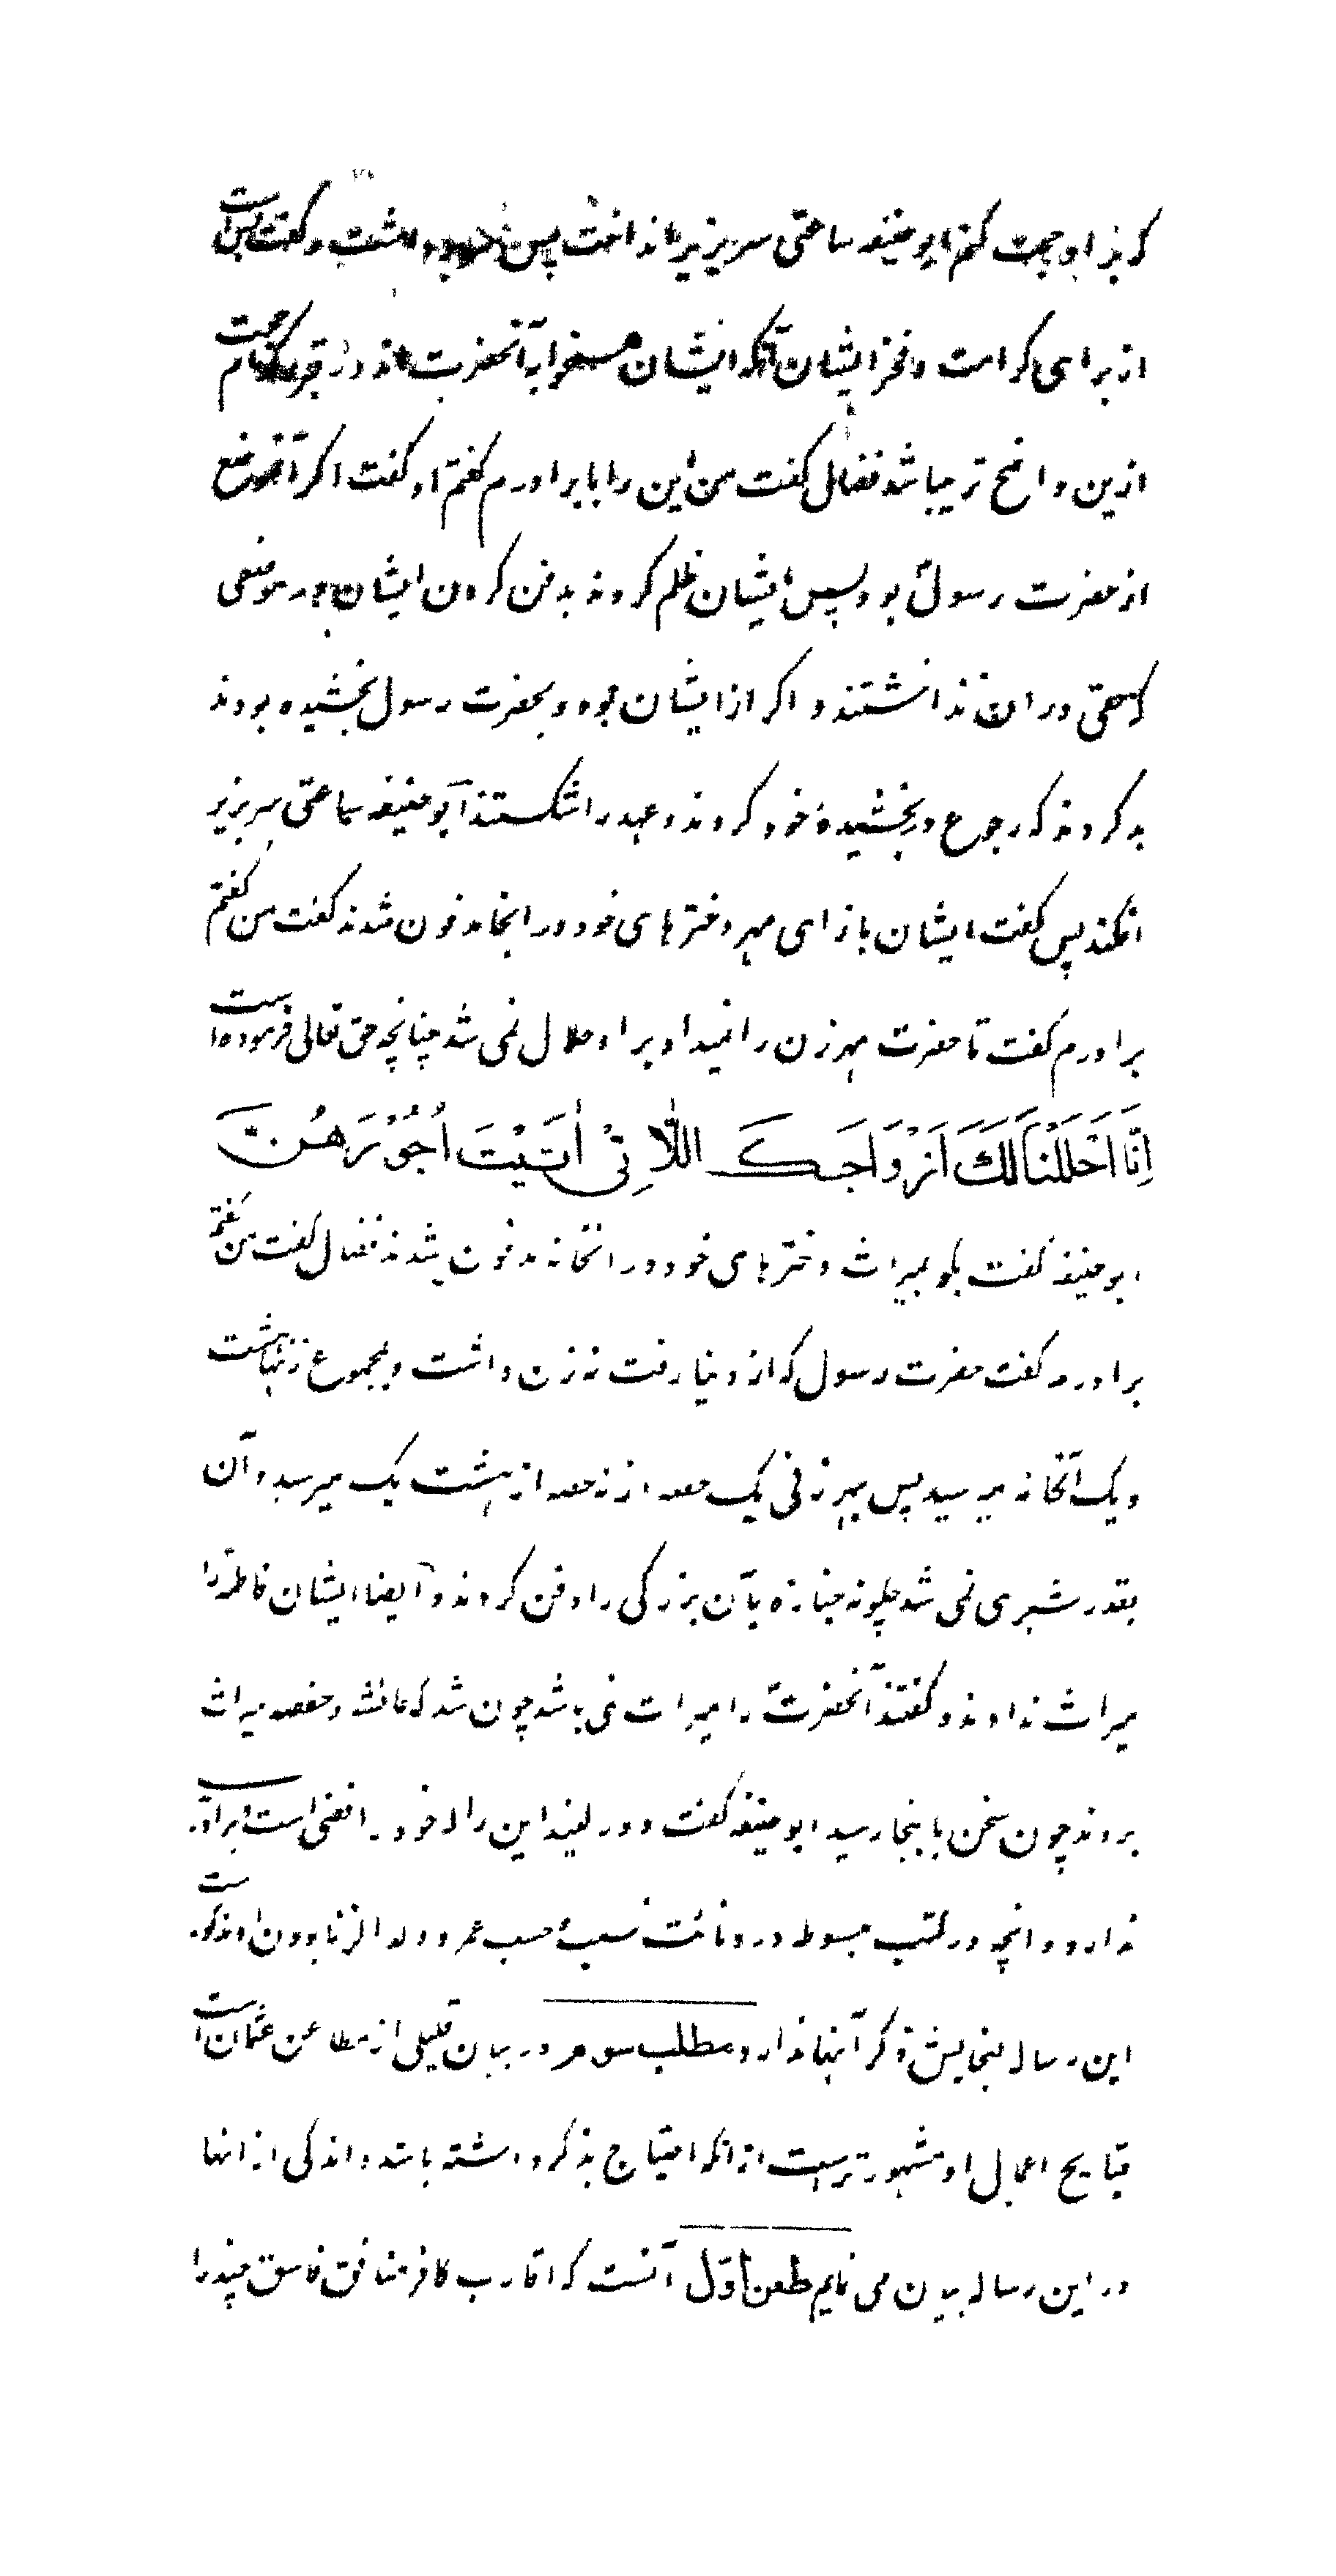 که بذا و حجت کنم ابو حنیفه ساعتی سر بزیر انداخت پس سر برداشت و گفت بس است
از برای کرامت و فخر ایشان آنکه ایشان همخوابه آنحضرت اند در قبر کدام حجت
ازین واضح تر میباشد فضال گفت من این را با برادرم گفتم او گفت اگر آن موضع
از حضرت رسول بود پس ایشان ظلم کردند بدفن کردن ایشان در موضعی
که حقی در ان نداشتند و اگر از ایشان بوده و بحضرت رسول بخشیده بودند
بد کردند که رجوع در بخشیدۀ خود کردند و عهد را شکستند ابو حنیفه ساعتی سر بزیر
افکند پس گفت ایشان بازای مهر دخترهای خود در انجا مدفون شدند گفت من گفتم
برادرم گفت تا حضرت مهر زن را نمیداد بر او حلال نمی شد چنانچه حق تعالی فرموده است
اِنَّا اَحْلَلْنَا لَكَ اَزْوَاجَكَ اللَّاتِیْ اٰتَیْتَ اُجُوْرَهُنَّ
ابو حنیفه گفت بگو بمیراث دخترهای خود در انخانه مدفون شدند فضال گفت من گفتم
برادرم گفت حضرت رسول که از دنیا رفت نه زن داشت و بمجموع زنها هشت
و یک آنخانه میرسید پس بهر زنی یک حصه از نه حصه از هشت یک میرسد و آن
بقدر شبری نمی شد چگونه جنازه بآن بزرگی را دفن کردند و ایضا ایشان فاطمه را
میراث ندادند و گفتند آنحضرت را میراث نمی باشد چون شد که عائشه و حفصه میراث
بردند چون سخن باینجا رسید ابو حنیفه گفت دور کنید این را که خود رافضی است و برادر
ندارد و انچه در کتب مبسوط در دنائت نسب و حسب عمر و ولد الزنا بودن او مذکور ست
این رساله گنجایش ذکر آنها ندارد مطلب سوم در بیان قلیلی از مطاعن عثمان است
قبایح اعمال او مشهور تر است از انکه احتیاج بذکر داشته باشد و اندکی از انها
در این رساله بیان می نمایم طعن اوّل آنست که اقارب کافر منافق فاسق چند را